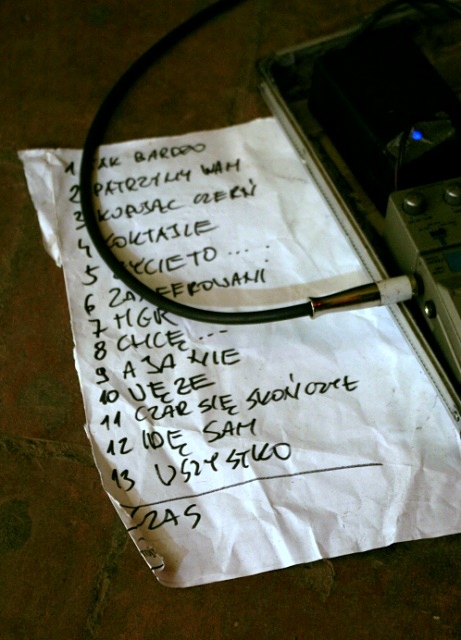 1 JAK BARDZO
2 PATRZYMY WAM
3 KUPUJĄC CZERŃ
4 KOKTAJLE
5 ŻYCIE TO .....
6
7 MGR
8 CHCĘ ...
9 A JA NIE
10 WĘŻE
11 CZAR SIĘ SKOŃCZYŁ
12 IDĘ SAM
13 WSZYSTKO
CZAS